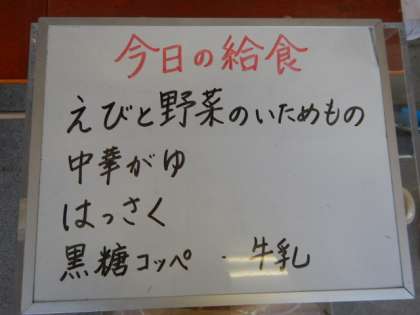 今日の給食
えびと野菜のいためもの
中華がゆ
はっさく
黒糖コッペ ・ 牛乳